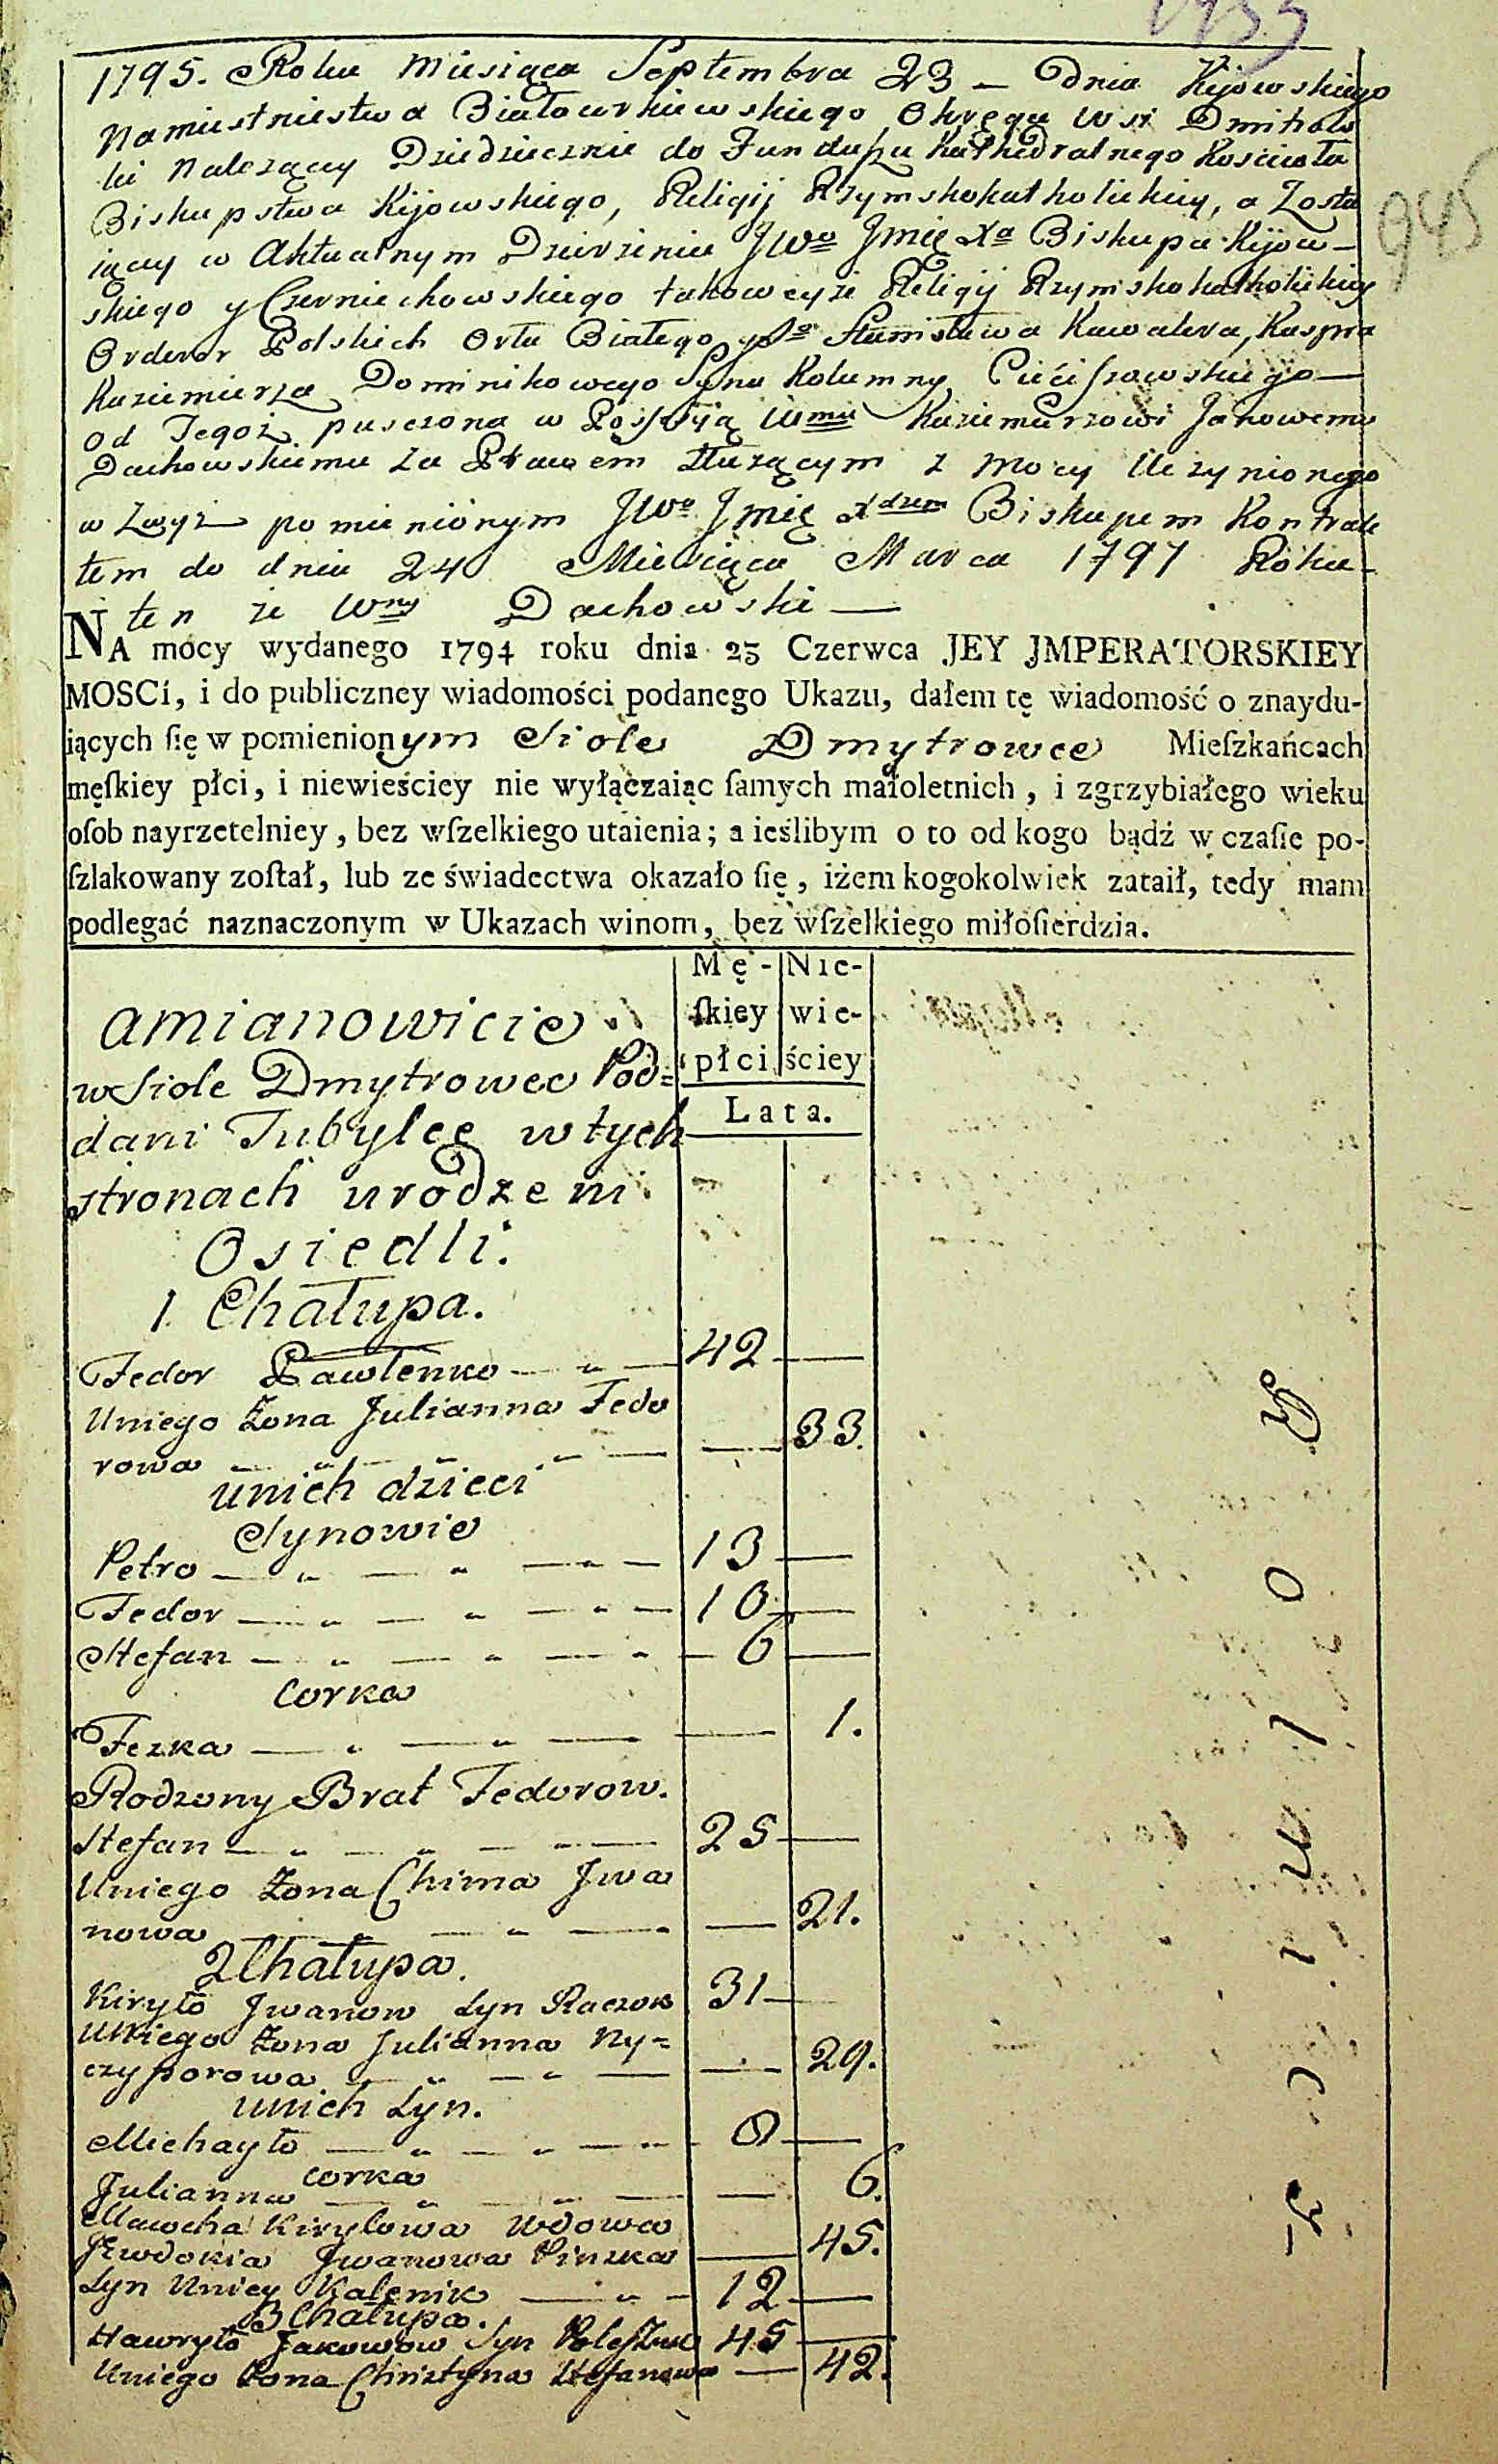 1795. Roku Miesiąca Septembra 23 — Dnia Kijowskiego
Namiestnictwa Białocerkiewskiego Okręgu Wsi Dmitrow
ki Należący Dziedzicznie do Funduszu Kathedralnego Kościoła
Biskupstwa Kijowskiego, Religij Rzymskokatholickiey, a Zosta
iący w Aktualnym Dzierżeniu JWo Jmię Xa Biskupa Kijow—
skiego y Czerniechowskiego takoweyże Religij Rzymskokatholickiey
Orderor Polskich Orła Białego y So Stanisława Kawalera, Kaspra
Kazimierza Dominikowego Syna Kolumny Cieciszowskiego—
od Tegoż puszczona w Possessyą Wmu Kazimierzowi Janowemu
Dachowskiemu za Prawem służącym z Mocy Uczynionego
w Zwyż pomienionym JWo Jmię Xdzem Biskupem Kontrak
tem do dnia 24 Miesiąca Marca 1797 Roku—
ten że Wny Dachowski —
NA mocy wydanego 1794 roku dnia 23 Czerwca JEY JMPERATORSKIEY
MOSCi, i do publiczney wiadomości podanego Ukazu, dałem tę wiadomość o znaydu-
iących ſię w pomienionym Siole Dmytrowce Mieſzkańcach
męſkiey płci, i niewieściey nie wyłączaiąc ſamych małoletnich, i zgrzybiałego wieku
oſob nayrzetelniey, bez wſzelkiego utaienia; a ieślibym o to od kogo bądź w czaſie po-
ſzlakowany zoſtał, lub ze świadectwa okazało ſię, iżem kogokolwiek zataił, tedy mam
podlegać naznaczonym w Ukazach winom, bez wſzelkiego miłoſierdzia.
Mę- Nie-
ſkiey wie-
płci ściey
Lata.
amianowicie
w Siole Dmytrowce Pod=
dani Tubylce w tych
stronach urodzeni
Osiedli.
1 Chałupa.
Fedor Pawlenko — 42 —
Uniego Żona Julianna Fedo
rowa — 33.
unich dzieci
Synowie
Petro — 13 —
Fedor — 10 —
Stefan — 6 —
Corka
Feska — 1.
Rodzony Brat Fedorow.
Stefan — 25 —
Uniego Żona Chima Jwa
nowa — 21.
2 Chałupa.
Kiryło Jwanow Syn 31 —
Uniego Żona Julianna Ny=
czyporowa — 29.
unich Syn.
Michayło — 8 —
Corka
Julianna — 6.
Macocha Kiryłowa Wdowa
Jewdokia Jwanowa — 45.
Syn Uniey Kalenik — 12 —
3 Chałupa.
Hawryło Jakowow Syn 45 —
Uniego Żona Christyna Stefanowa — 42.
945